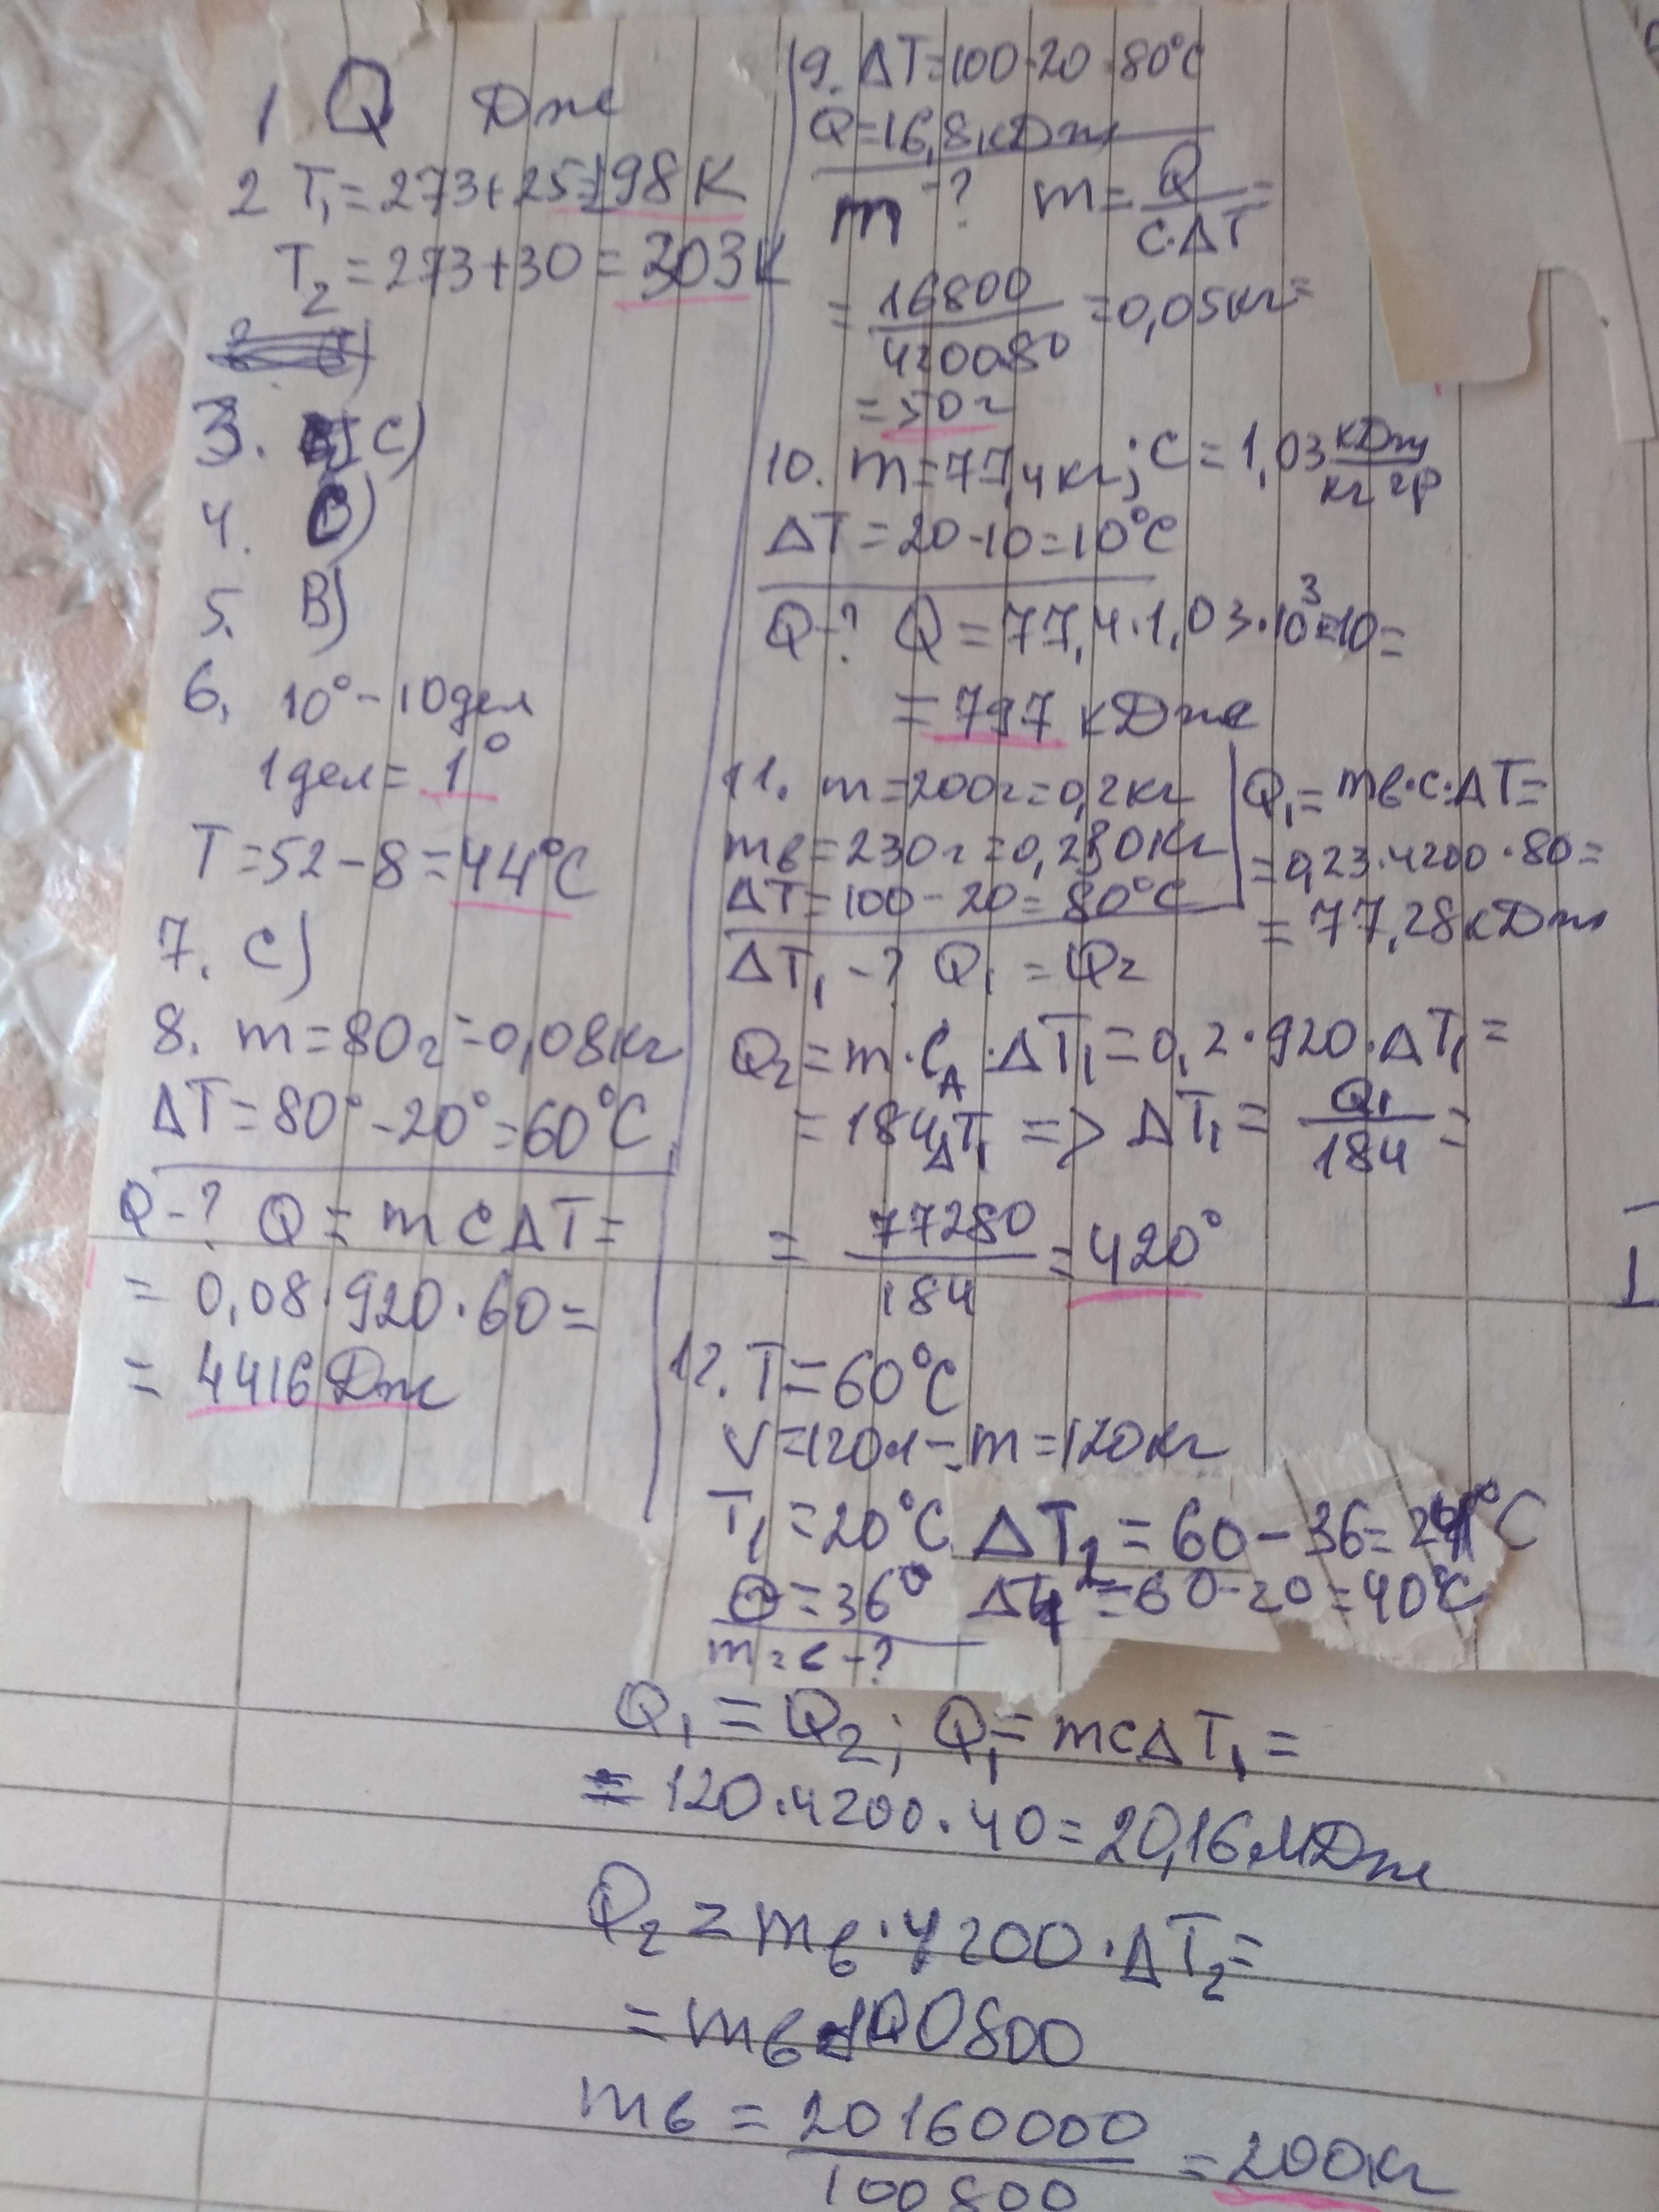 1 Q Дж
2 T₁ = 273+25=298K
T₂ = 273+30 = 303K
3. C)
4. C)
5. B)
6. 10° - 10 дел
1 дел = 1°
T = 52 - 8 = 44°C
7. C)
8. m = 80г = 0,08кг
ΔT = 80° - 20° = 60°C
Q - ? Q = mcΔT =
= 0,08 · 920 · 60 =
= 4416 Дж
9. ΔT = 100-20=80°C
Q = 16,8 кДж
m - ? m = Q / C·ΔT =
= 16800 / 4200·80 = 0,05кг =
= 50г
10. m = 77,4кг; C = 1,03 кДж / кг гр
ΔT = 20-10 = 10°C
Q - ? Q = 77,4 · 1,03 · 10³ · 10 =
= 797 кДж
11. m = 200г = 0,2кг
mв = 230г = 0,230кг
ΔT = 100 - 20 = 80°C
Q₁ = mв·c·ΔT =
= 0,23·4200·80 =
= 77,28 кДж
ΔT₁ - ? Q₁ = Q₂
Q₂ = m·C_A·ΔT₁ = 0,2·920·ΔT₁ =
= 184ΔT₁ => ΔT₁ = Q₁ / 184 =
= 77280 / 184 = 420°
12. T = 60°C
V = 120л - m = 120кг
T₁ = 20°C ΔT₂ = 60 - 36 = 24°C
Θ = 36° ΔT₁ = 60-20 = 40°C
Q₁ = Q₂; Q₁ = mcΔT₁ =
= 120·4200·40 = 20,16 МДж
Q₂ = mв·4200·ΔT₂ =
= mв·100800
mв = 20160000 / 100800 = 200кг